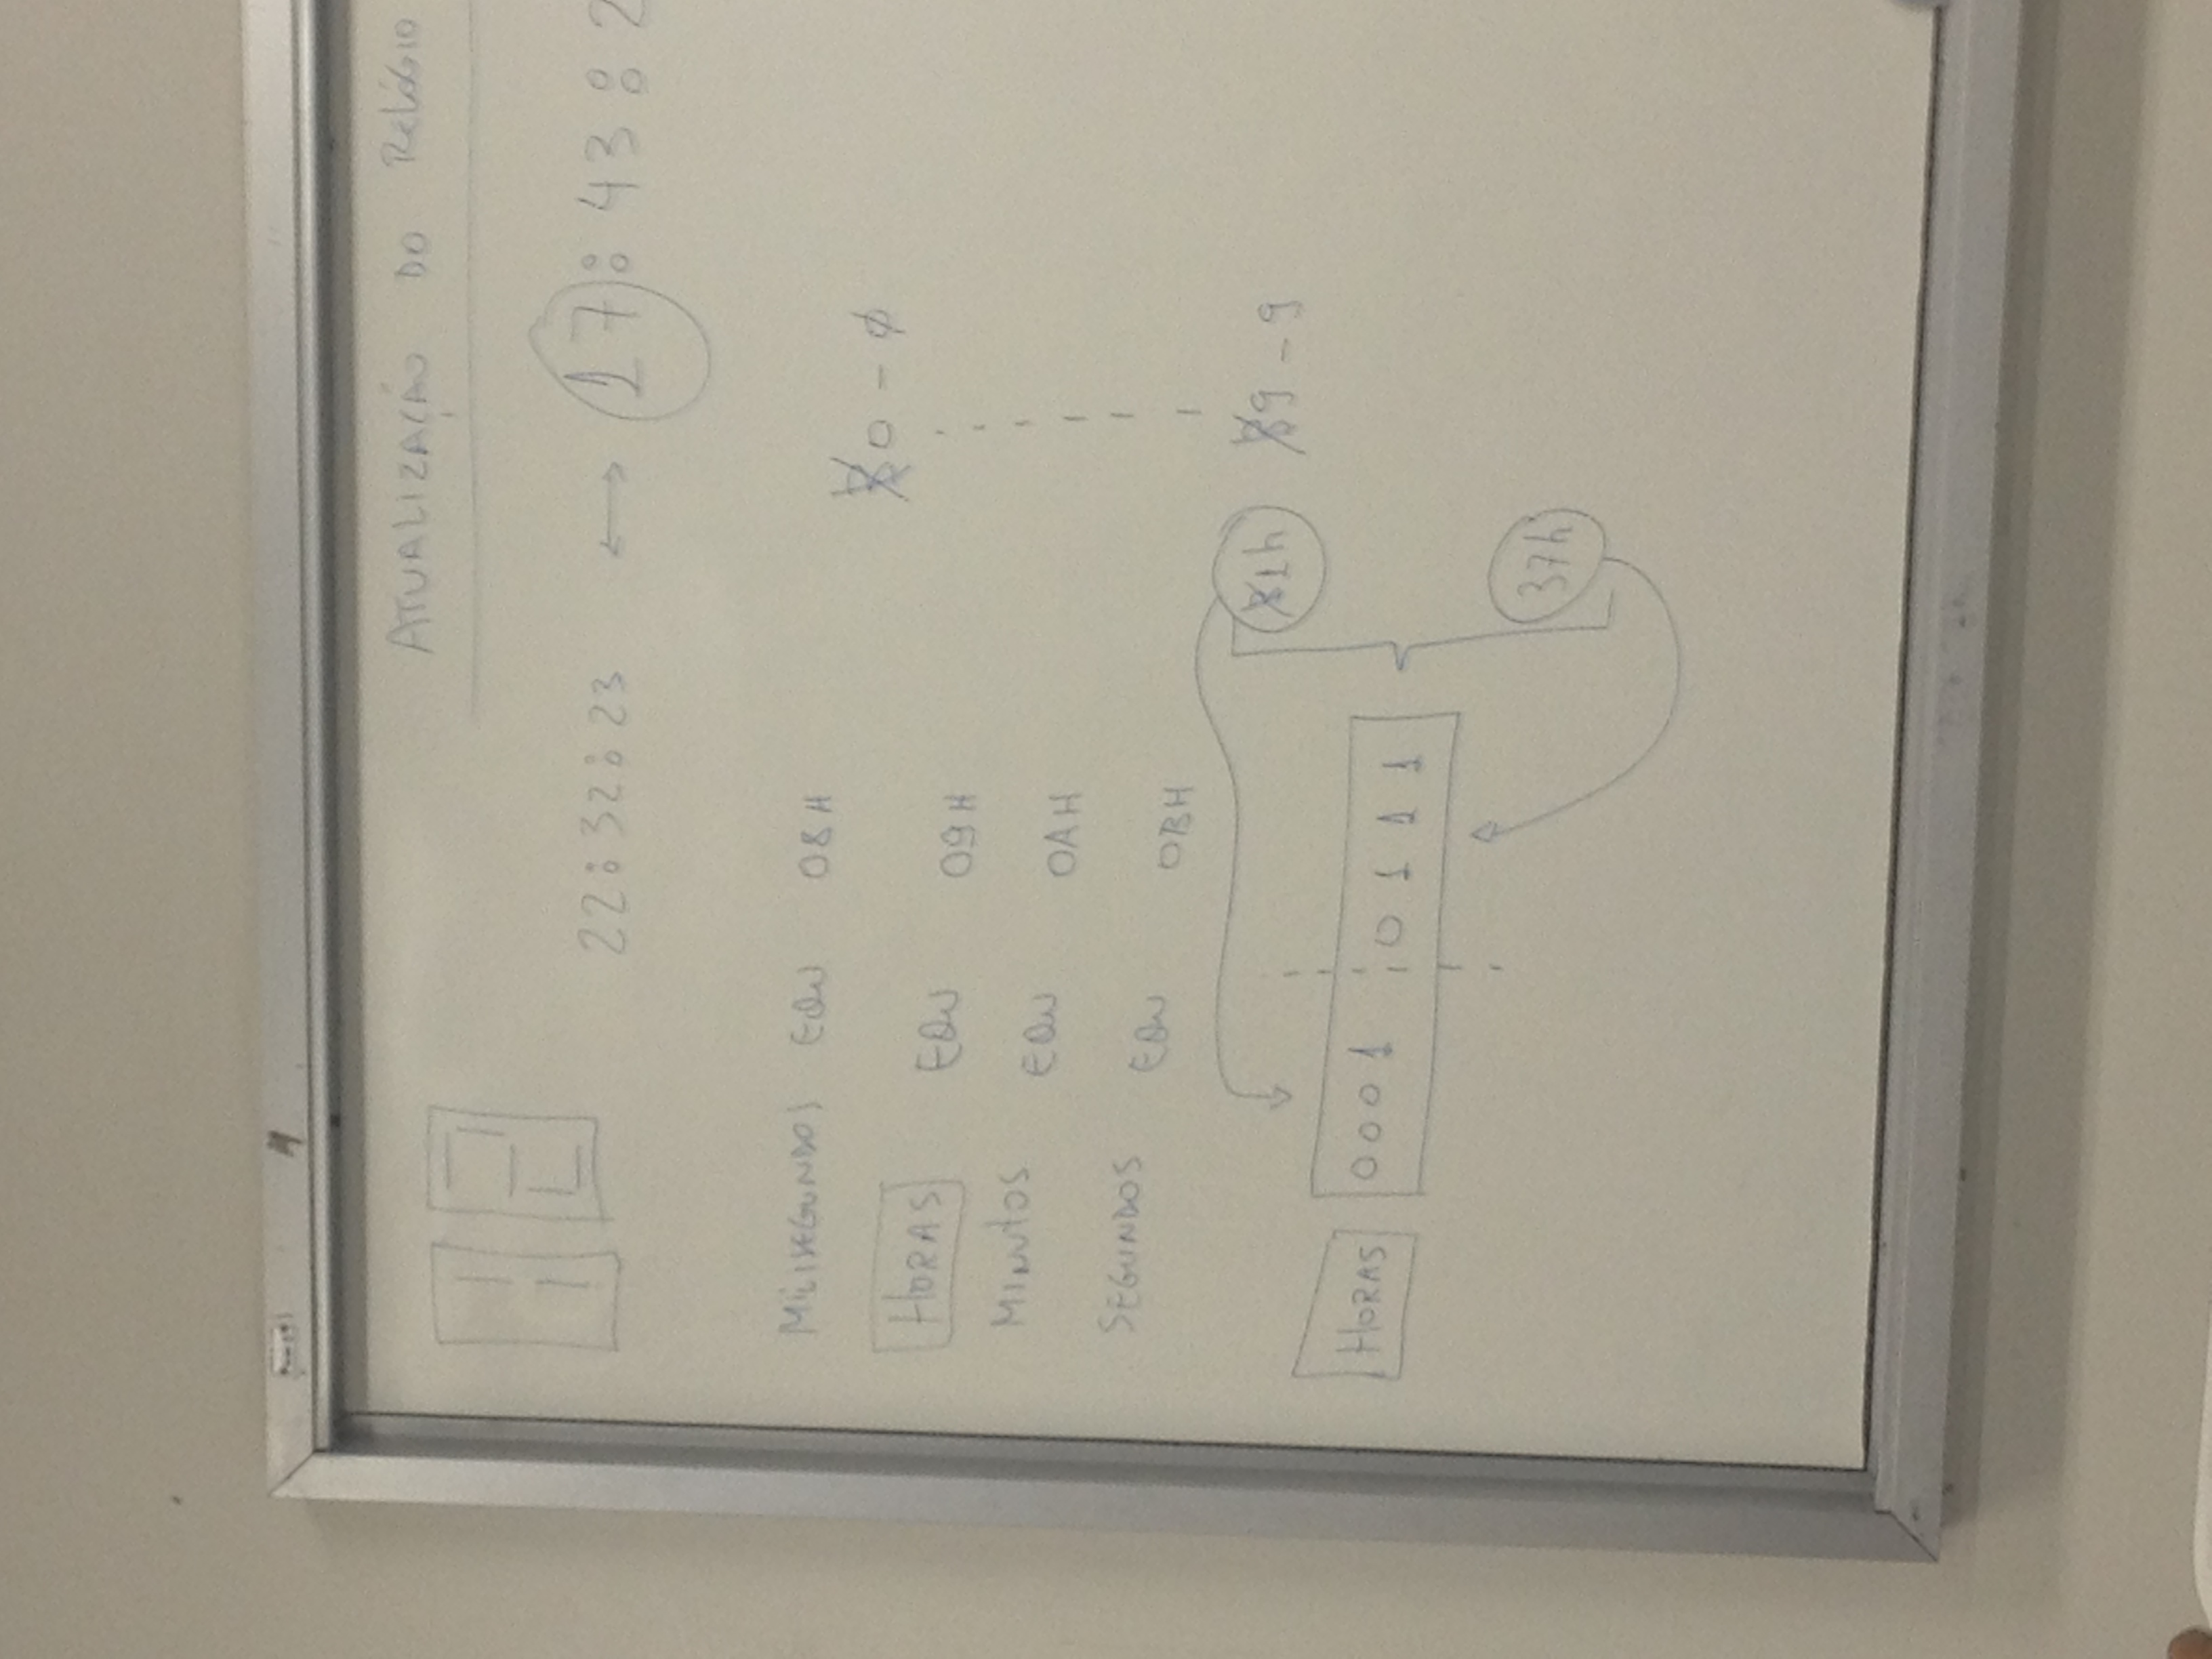 ATUALIZAÇÃO DO RELÓGIO
12
22:32:23 ↔ 17:43:2
MILISEGUNDOS EQU 08H
HORAS EQU 09H
MINUTOS EQU 0AH
SEGUNDOS EQU 0BH
30 - Ø
39 - 9
31h
HORAS 0001 0111
37h